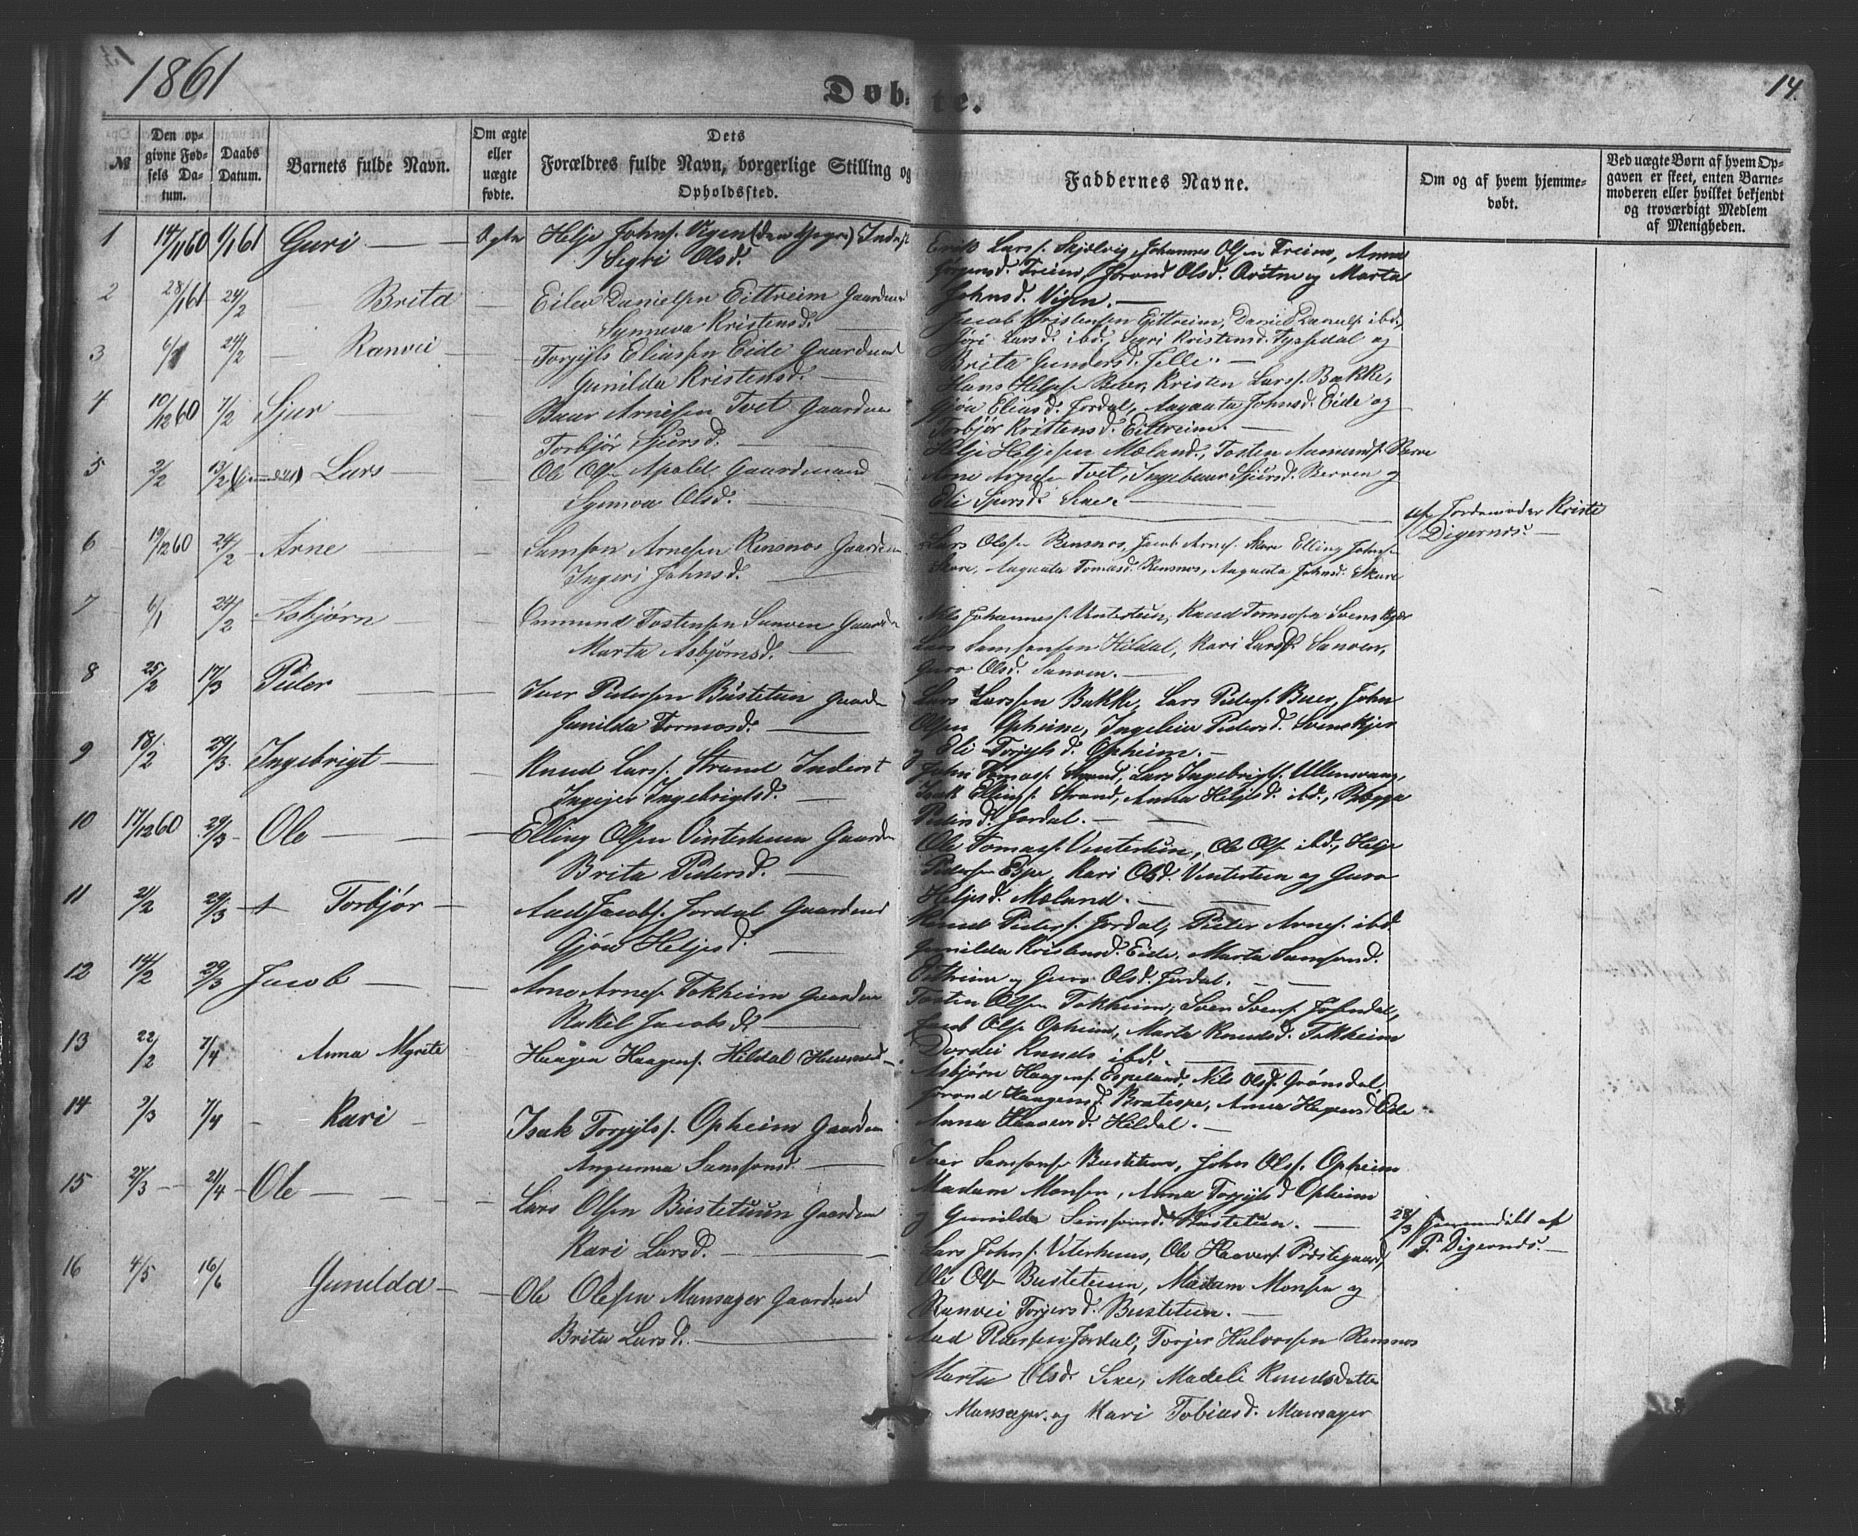 1861
Døbte.
14.
№
Den opgivne Fødsels Datum.
Daabs Datum.
Barnets fulde Navn.
Om ægte eller uægte fødte.
Dets Forældres fulde Navn, borgerlige Stilling og Opholdssted.
Faddernes Navne.
Om og af hvem hjemmedøbt.
Ved uægte Børn af hvem Opgaven er skeet, enten Barnemoderen eller hvilket bekjendt og troværdigt Medlem af Menigheden.
1 14/11 60 1/1 61 Guri — Ægte Helje Johns. Vigen (den yngr.) Inderst
Sigri Olsd.
Erik Larss. Skjelvig, Johannes Olsen Freim, Anna
Jørgensd. Freim, Jorand Olsd. og Marta
Johnsd. Vigen. —
2 28/1 61 24/2 Brita — Eilev Danielsen Eittreim Gaardmand
Synneva Kristensd. —
Jacob Kristensen Eittreim, Daniel Daniels. ibd.,
Jøri Larsd. ibd., Sigri Kristensd. Tyssedal og
Brita Gundersd. Jelle. —
3 6/1 24/2 — Ranvei — Torgyls Eliasen Eide Gaardmand
Gunilda Kristensd. —
Hans Heljes. Buer, Kristen Larss. Bakke,
Gjøa Eliasd. Jordal, Angaata Johnsd. Eide og
Torbjør Kristensd. Eittreim. —
4 10/12 60 7/2 Sjur — Baar Arnesen Tvet Gaardm
Torbjør Sjursd. —
Helje Heljesen Mæland, Tosten Aamunds. Berve
Arne Arnesen Tvet, Ingebaar Sjursd. Berven og
Eli Sjursd. Sexe. —
5 2/2 13/2 Lars — Ole Ols. Apald Gaardmand
Synnva Olsd. —
af Jordemoder Kristi
Digernes. —
6 19/12 60 24/2 Arne — Samson Arnesen Rensnos Gaardm
Ingeri Johnsd. —
Lars Olsen Rensnos, Jacob Arnes. Skare Elling Johnsen
Skare, Angaata Tomasd. Rensnos, Angaata Johnsd. Skare
7 6/1 24/2 Asbjørn — Ommund Tostensen Sanven Gaardm
Marta Asbjørnsd. —
Nils Johanness. Vintertun, Knud Tormosen Svenskjer
Lars Samsonsen Hildal, Kari Larsd. Sanven,
Guro Olsd. Sanven. —
8 25/2 17/3 Peder — Iver Pedersen Bustetun Gaardm
Gunilda Tormosd. —
Lars Larssen Bakke, Lars Peders. Buer, John
Olsen Opheim, Ingeleiv Pedersd. Svenskjer
og Eli Torgylsd. Opheim. —
9 18/2 29/3 Ingebrigt — Knud Larss. Strand Inderst
Ingejer Ingebrigtsd. —
John Tomass. Strand, Lars Ingebrigts. Ullensvang,
Isak Ellings. Strand, Anna Heljesd. ibd.,
Pedersd. Jordal. —
10 17/12 60 29/3 Ole — Elling Olsen Vintertun Gaardm
Brita Pedersd. —
Ole Tomass. Vintertun, Ole Ols. ibd., Helje
Pedersen Espe, Kari Olsd. Vintertun og Guro
Heljesd. Mæland. —
11 21/2 29/3 Torbjør — Aad Jacobs. Jordal Gaardmand
Gjøa Heljesd. —
Knud Peders. Jordal, Peder Arnes. ibd.
Gunilda Kristensd. Eide, Marta Samsonsd.
Eittreim og Guro Olsd. Jordal. —
12 14/2 29/3 Jacob — Arne Arnes. Tokheim Gaardm
Rakel Jacobsd. —
Tosten Olsen Tokheim, Sven Svens. Jøsendal,
Jacob Ols. Opheim, Marta Knudsd. Tokheim
Dordei Knuds ibd.
13 22/2 7/4 Anna Myrete Haagen Haagens. Hildal Huusmand —
Asbjørn Haagens. Espeland, Nils Ols. Grønsdal,
Jorand Haagensd. Bratespe, Anna Hagensd. Eide
Anna Haavarsd. Hildal. —
14 2/3 7/4 — Kari — Isak Torgylss. Opheim Gaardm
Angunna Samsonsd. —
Iver Samsons. Bustetun, John Olss. Opheim
Madam Monsen, Anna Torgylsd. Opheim
og Gunilda Samsonsd. Bustetun. —
15 27/3 21/4 Ole — Lars Olsen Bustetuun Gaardm
Kari Larsd. —
Lars Johns. Viterhuus, Ole Haavers. Præstegaard,
Ole Ols. Bustetuun, Madam Monsen og
Ranvei Torgersd. Bustetun. —
28/3 hjemmedøbt af
P. Digernes. —
16 4/5 16/6 Gunilda — Ole Olesen Mansager Gaardmand
Brita Larsd. —
Aad Pedersen Jordal, Torger Halvorsen Rensnos
Marta Olsd. Sexe, Madeli Knudsdatter
Mansager, og Kari Tobiasd. Mansager